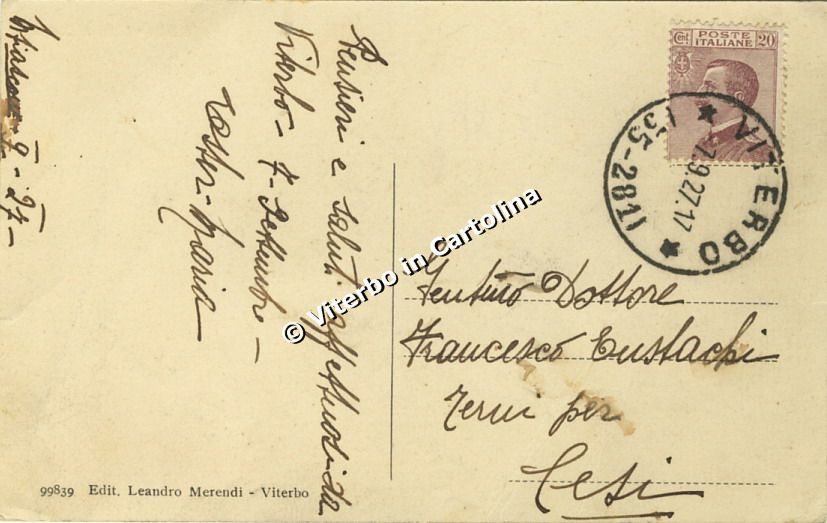 Pensieri e saluti affettuosi da
Viterbo - 7 Settembre -
Maria
9 - 27 -
Cent POSTE ITALIANE 20
VITERBO
7.9.27.17
(55-281)
© Viterbo in Cartolina
Dottore
Francesco Eustachi
Terni per
Cesi
99839 Edit. Leandro Merendi - Viterbo